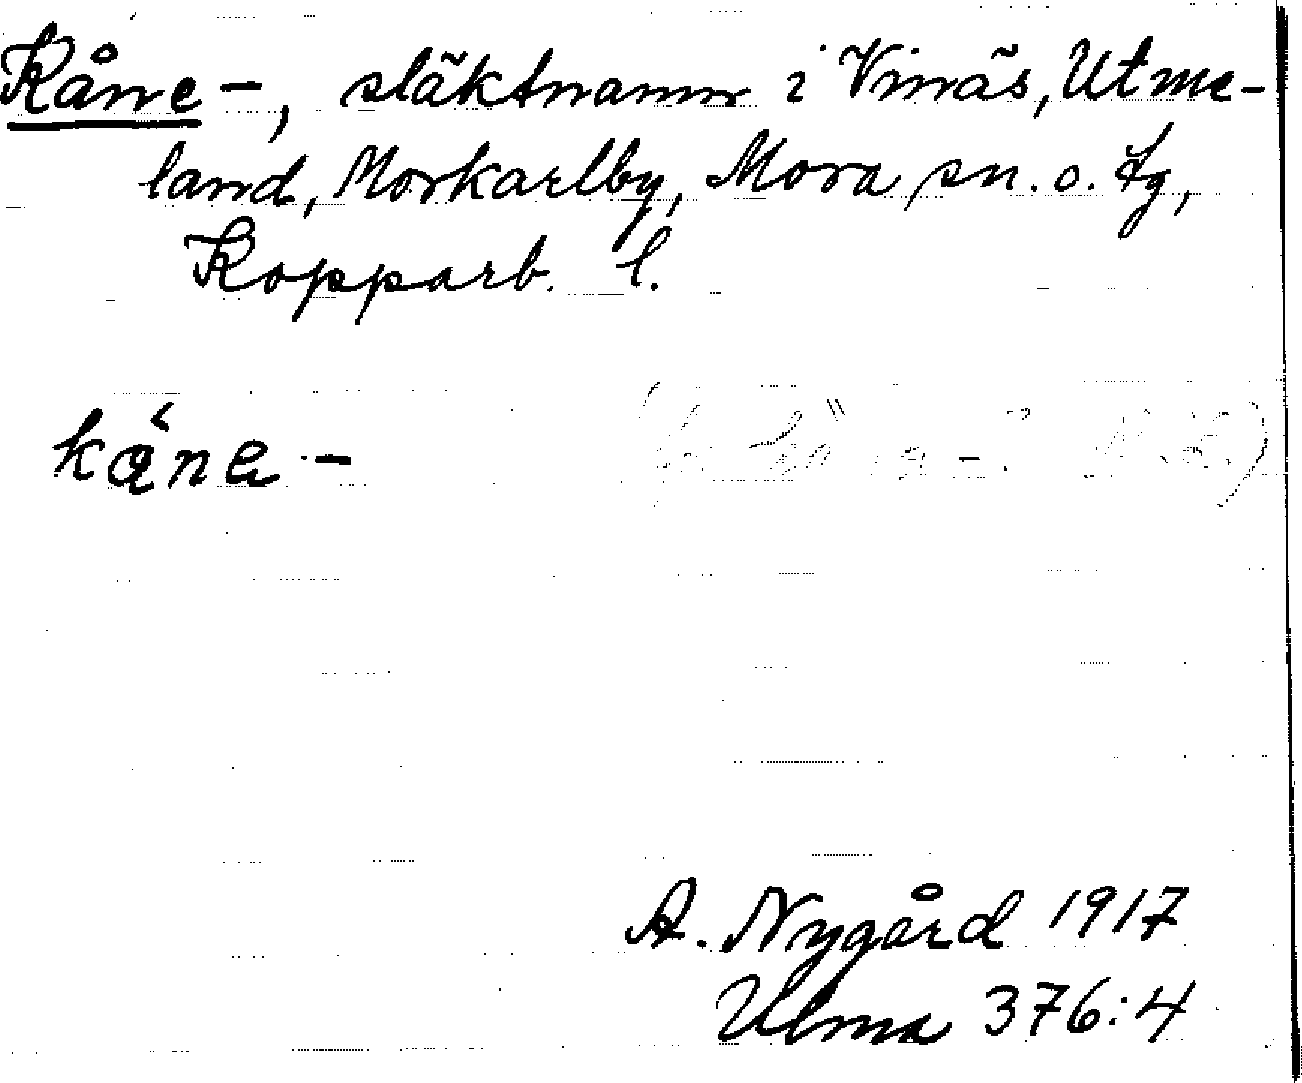 Kåne-, släktnamn i Vinäs, Utme-
land, Morkarlby, Mora sn. o. tg,
Kopparb. l.
kåne-
A. Nygård 1917
Ulma 376:4